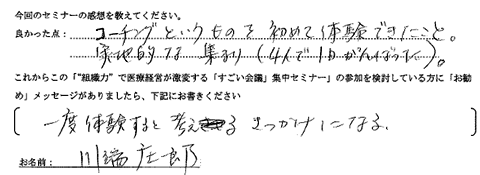 今回のセミナーの感想を教えてください。
良かった点： コーチングというものを初めて体験できたこと。
実地的な集まり（4人で1日がんばった）。
これからこの「"組織力" で医療経営が激変する「すごい会議」集中セミナー」の参加を検討している方に「お勧
め」メッセージがありましたら、下記にお書きください
一度体験すると考える きっかけになる。
お名前： 川端 庄一郎